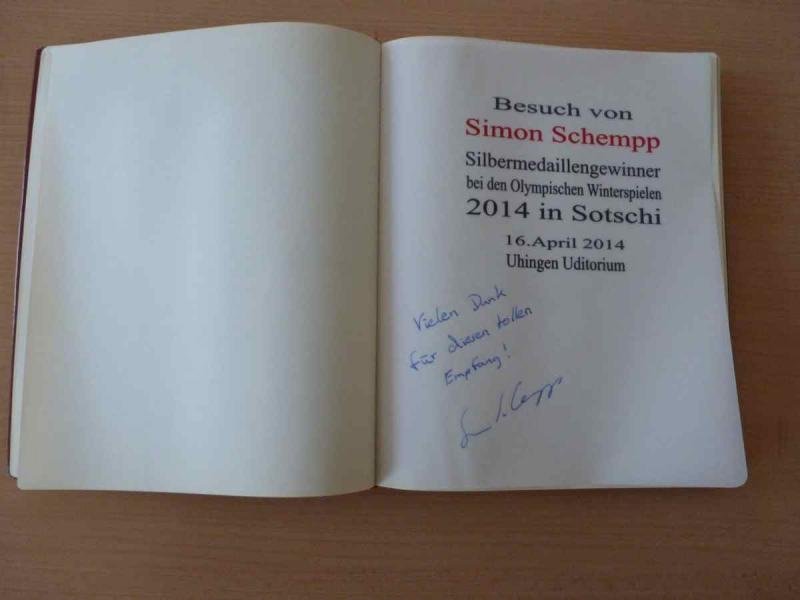 Besuch von
Simon Schempp
Silbermedaillengewinner
bei den Olympischen Winterspielen
2014 in Sotschi
16.April 2014
Uhingen Uditorium
Vielen Dank
für diesen tollen
Empfang!